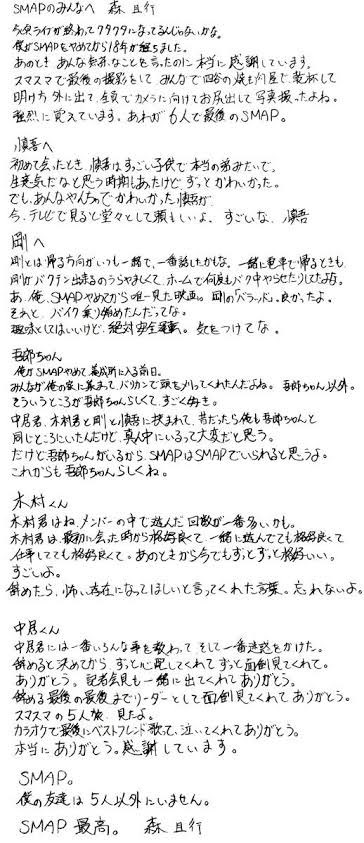 SMAPのみんなへ 森 且行
今夜ライブが終わってクタクタになってるんじゃないかな。
僕がSMAPをやめてから18年が経ちました。
あのとき あんな無茶なことを言ったのに 本当に感謝しています。
スマスマで最後の撮影をして みんなで四谷の焼き肉屋で、乾杯して
明け方 外に出て、全員でカメラに向けてお尻出して写真撮ったよね。
強烈に覚えています。あれが6人で最後のSMAP。
慎吾へ
初めて会ったとき、慎吾はすっごい子供で本当の弟みたいで。
生意気だなと思う時期もあったけど、ずっとかわいかった。
でも、あんなやんちゃで かわいかった慎吾が
今、テレビで見ると堂々として頼もしいよ。すごいな、慎吾
剛へ
剛とは帰る方向がいつも一緒で、一番話したかもな。一緒に電車で帰るときも、
剛がバク転出来るのうらやましくて、ホームで何度もバク中やらせたりしてたよな。
あ、俺、SMAPやめてから唯一見た映画。剛の「バラッド」。良かったよ。
それと、バイク乗り始めたんだってな。
趣味としてはいいけど、絶対安全運転。気をつけてな。
吾郎ちゃん
俺がSMAPやめて、養成所に入る前日。
みんなが俺の家に集まって、バリカンで頭を刈ってくれたんだよね。吾郎ちゃん以外。
そういうところが吾郎ちゃんらしくて、すごく好き。
中居君、木村君と剛と慎吾に挟まれて、昔だったら俺も吾郎ちゃんと
同じところにいたんだけど、真ん中にいるって大変だと思う。
だけど吾郎ちゃんがいるから、SMAPはSMAPでいられると思うよ。
これからも吾郎ちゃんらしくね。
木村くん
木村君はね、メンバーの中で遊んだ回数が一番多いかも。
木村君は、最初に会った時から格好良くて、一緒に遊んでても格好良くて
仕事してても格好良くて。あのときから今でもずっとずっと格好いい。
すごいよ。
辞めたら、怖い存在になってほしいと言ってくれた言葉。忘れないよ。
中居くん
中居君には一番いろんな事を教わって、そして一番迷惑をかけた。
辞めると決めてから、ずっと心配してくれて ずっと面倒見てくれて。
ありがとう。記者会見も一緒に出てくれて ありがとう。
辞める最後の最後までリーダーとして面倒見てくれて ありがとう。
スマスマの5人旅、見たよ。
カラオケで最後にベストフレンド歌って、泣いてくれてありがとう。
本当に ありがとう。感謝しています。
SMAP。
僕の友達は 5人以外にいません。
SMAP 最高。 森 且行